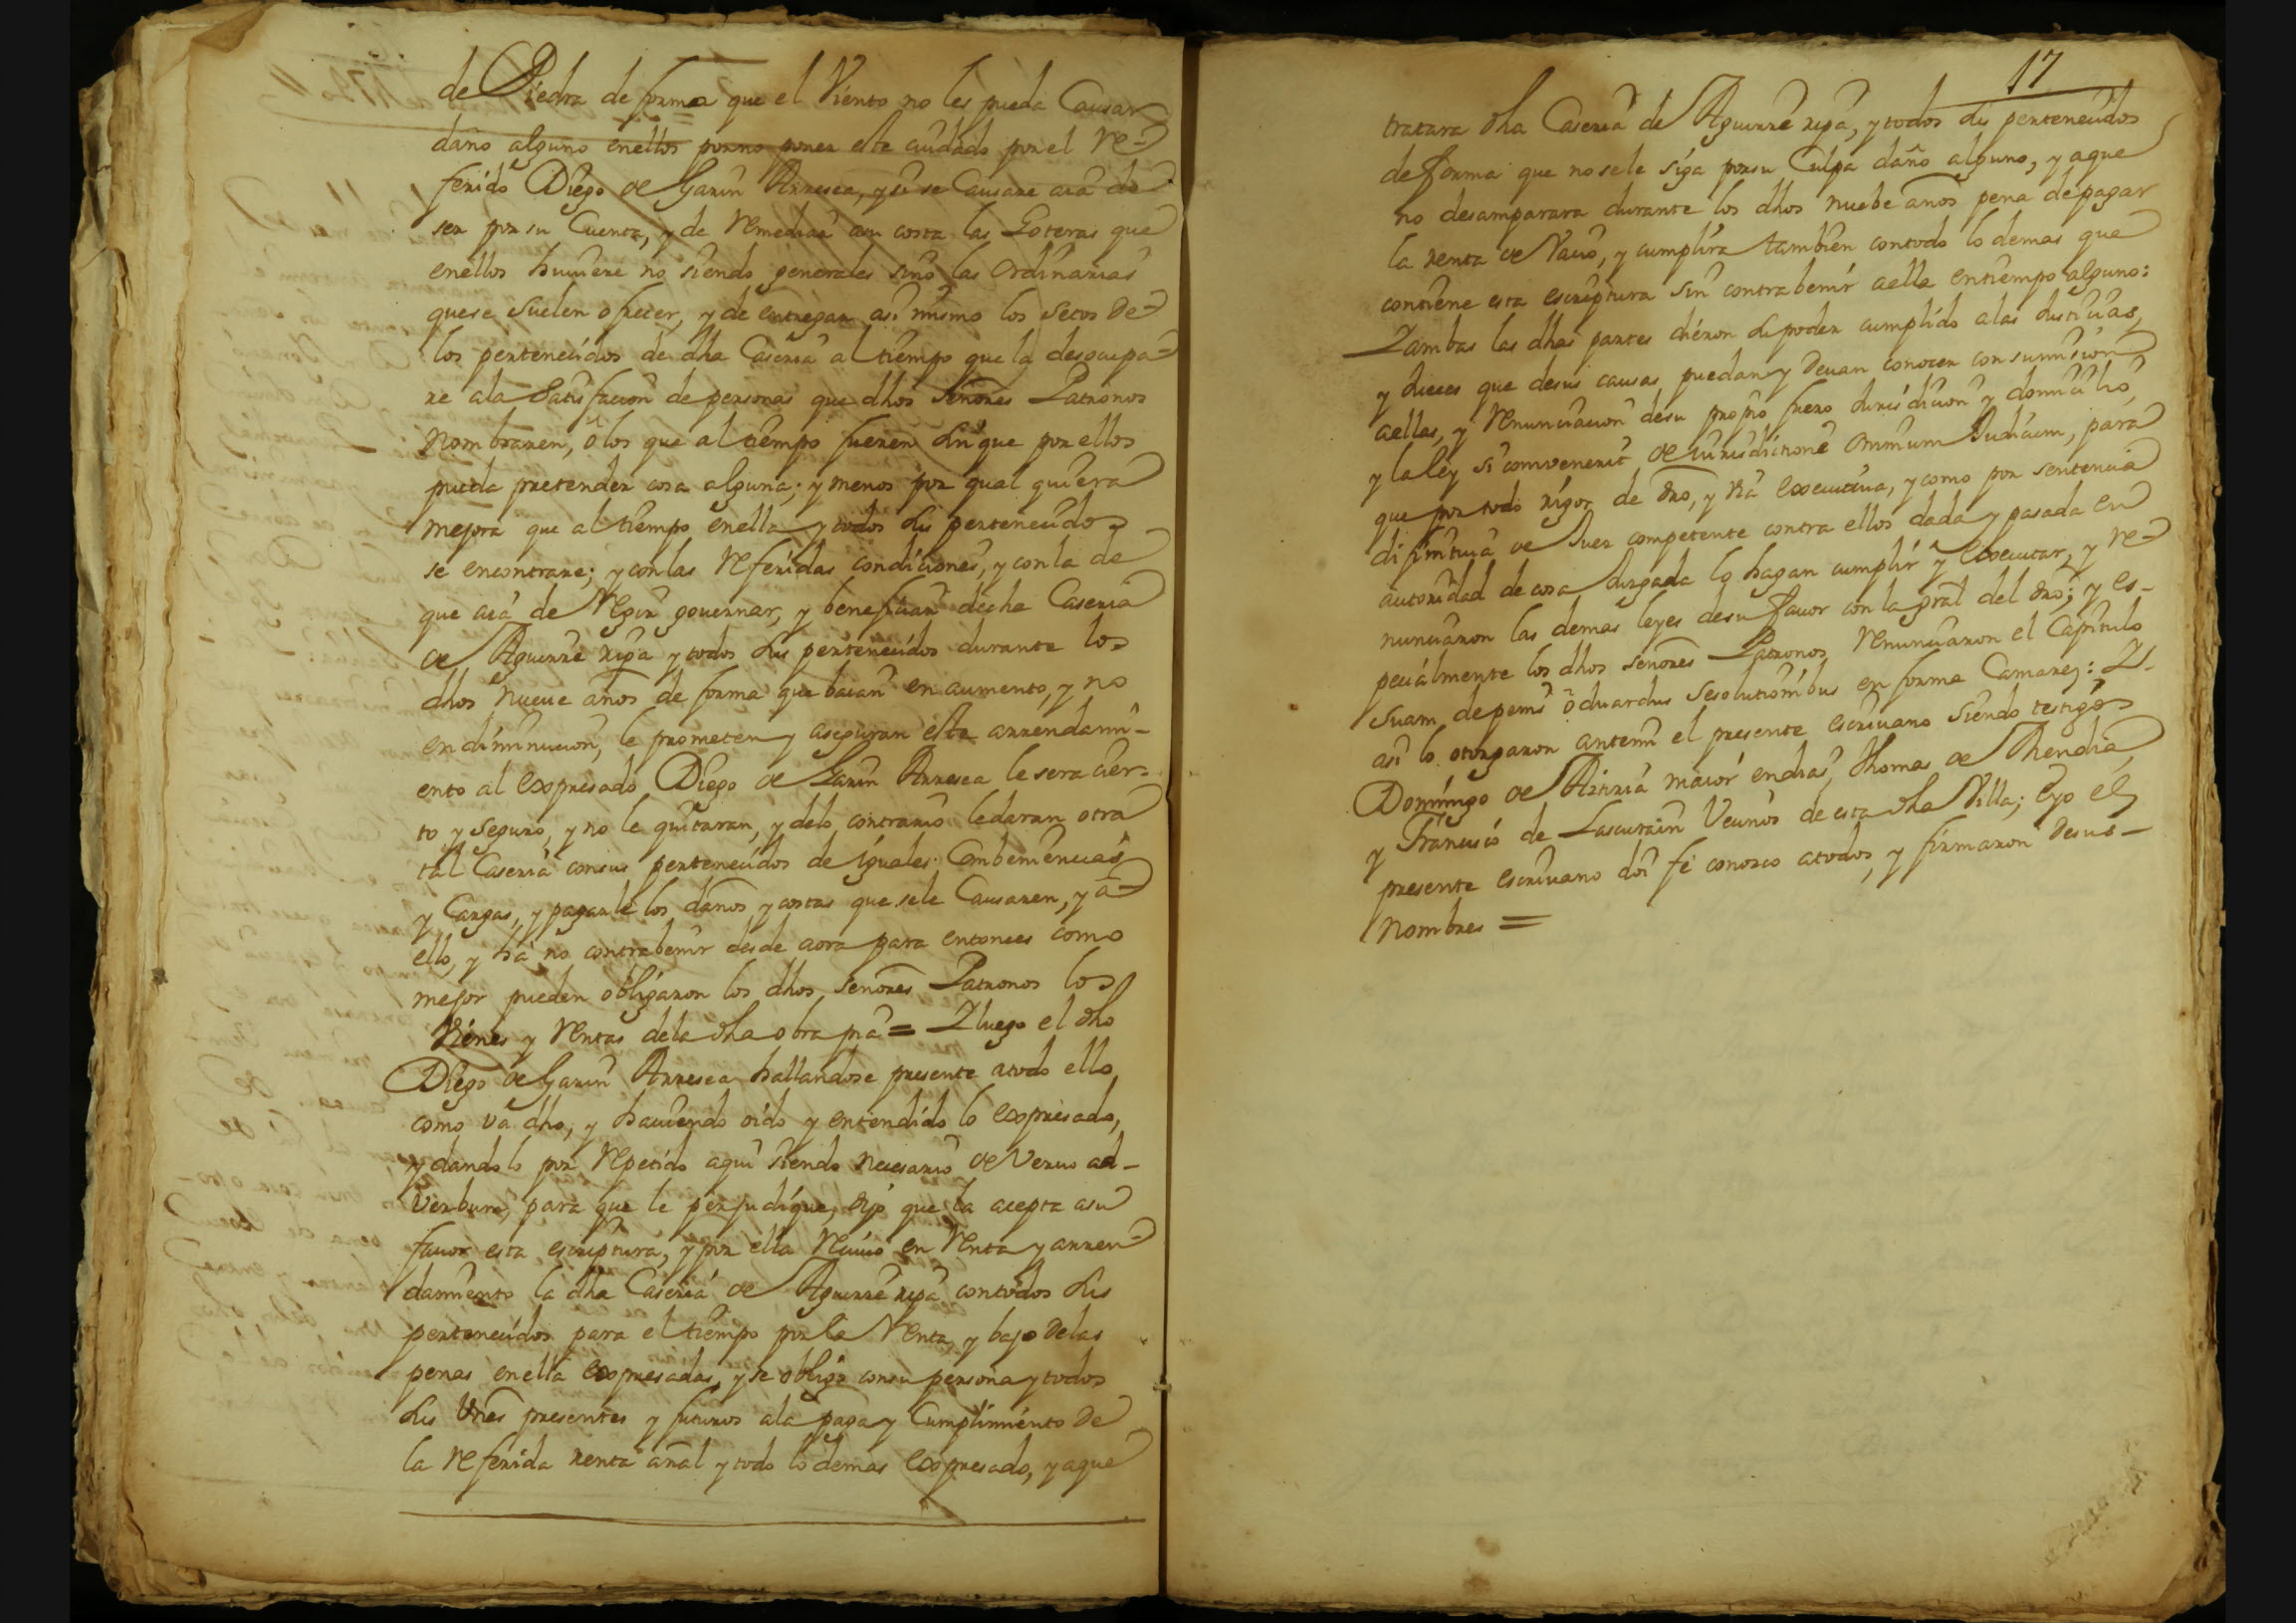 de Piedra de forma que el Viento no les pueda Causar
daño alguno enellos porno poner este cuidado por el Re-
ferido Diego de Garin Arresea, y si se Causare ara de
ser por su Cuenta, y de Remediar asu costa las Goteras que
enellos huviere no siendo generales sino las ordinarias
quese suelen ofrecer, y de entregar asi mismo los setos de
los pertenecidos de dha Caseria al tiempo que la desocupa-
re ala Satisfacion de personas que dhos Señores Patronos
Nombraren, o los que al tiempo fueren sin que por ellos
pueda pretender cosa alguna; y menos por qual quiera
mejora que al tiempo enella y todos sus pertenecidos
se encontrare; y con las Referidas condiciones, y con la de
que ara de Regir governar, y beneficiar dicha Caseria
de Aguirre ripa y todos sus pertenecidos durante los
dhos nueve años de forma que baian en aumento, y no
en diminucion, le prometen y aseguran este arrendami-
ento al expresado Diego de Garin Arresea le sera cier-
to y seguro, y no le quitaran, y delo contrario ledaran otra
tal Caseria consus pertenecidos de iguales Combeniencias
y Cargas, y pagarle los daños y costas que sele Causaren, y a
ello, y ha no contrabenir desde aora para entonces como
mejor pueden obligaron los dhos Señores Patronos los
Vienes y Rentas dela dha obra pia = Y luego el dho
Diego de Garin Arresea hallandose presente atodo ello
como va dho, y haviendo oido y entendido lo expresado,
y dandolo por Repetido aqui siendo necesario de Vervo ad-
Verbum, para que le perjudique, dijo que la acepta asu
favor esta escriptura, y por ella Recivio en Renta y arren-
damiento la dha Caseria de Aguirre ripa contodos sus
pertenecidos para el tiempo por la Renta, y bajo delas
penas enella expresadas, y se obligo consu persona y todos
sus Vnes presentes y futuros ala paga y Cumplimiento de
la Referida renta anal y todo lo demas expresado, y aque
17
tratara dha Caseria de Aguirre ripa, y todos sus pertenecidos
deforma que nosele siga porsu Culpa daño alguno, y aque
no desamparara durante los dhos nuebe años pena depagar
la renta de Vacio, y cumplira tambien contodo lo demas que
contiene esta escriptura sin contrabenir aella entiempo alguno:
Y ambas las dhas partes dieron su poder cumplido alas Justicias,
y Jueces que desus causas puedan y devan conocer con sumision
aellas, y Renunciacion desu propio fuero Jurisdicion y domicilio,
y la ley si convenerit de jurisdictione omnium Judicum, para
que por todo rigor de dro, y via executiva, y como por sentencia
difinitiva de Juez competente contra ellos dada y pasada en
autoridad de cosa Juzgada lo hagan cumplir y executar, y Re-
nunciaron las demas leyes desu favor con la gral del dro; y es-
pecialmente los dhos señores Patronos Renunciaron el Capitulo
Suam de penis oduardus sesolutionibus en forma Camarej: Y-
asi lo otorgaron antemi el presente escrivano siendo testigos
Domingo de maior endias, Thomas de Rendia,
y Francisco de Lascurain Vecinos de esta dha Villa; Eyo el
presente escrivano doi fe conosco atodos, y firmaron desus-
Nombres =